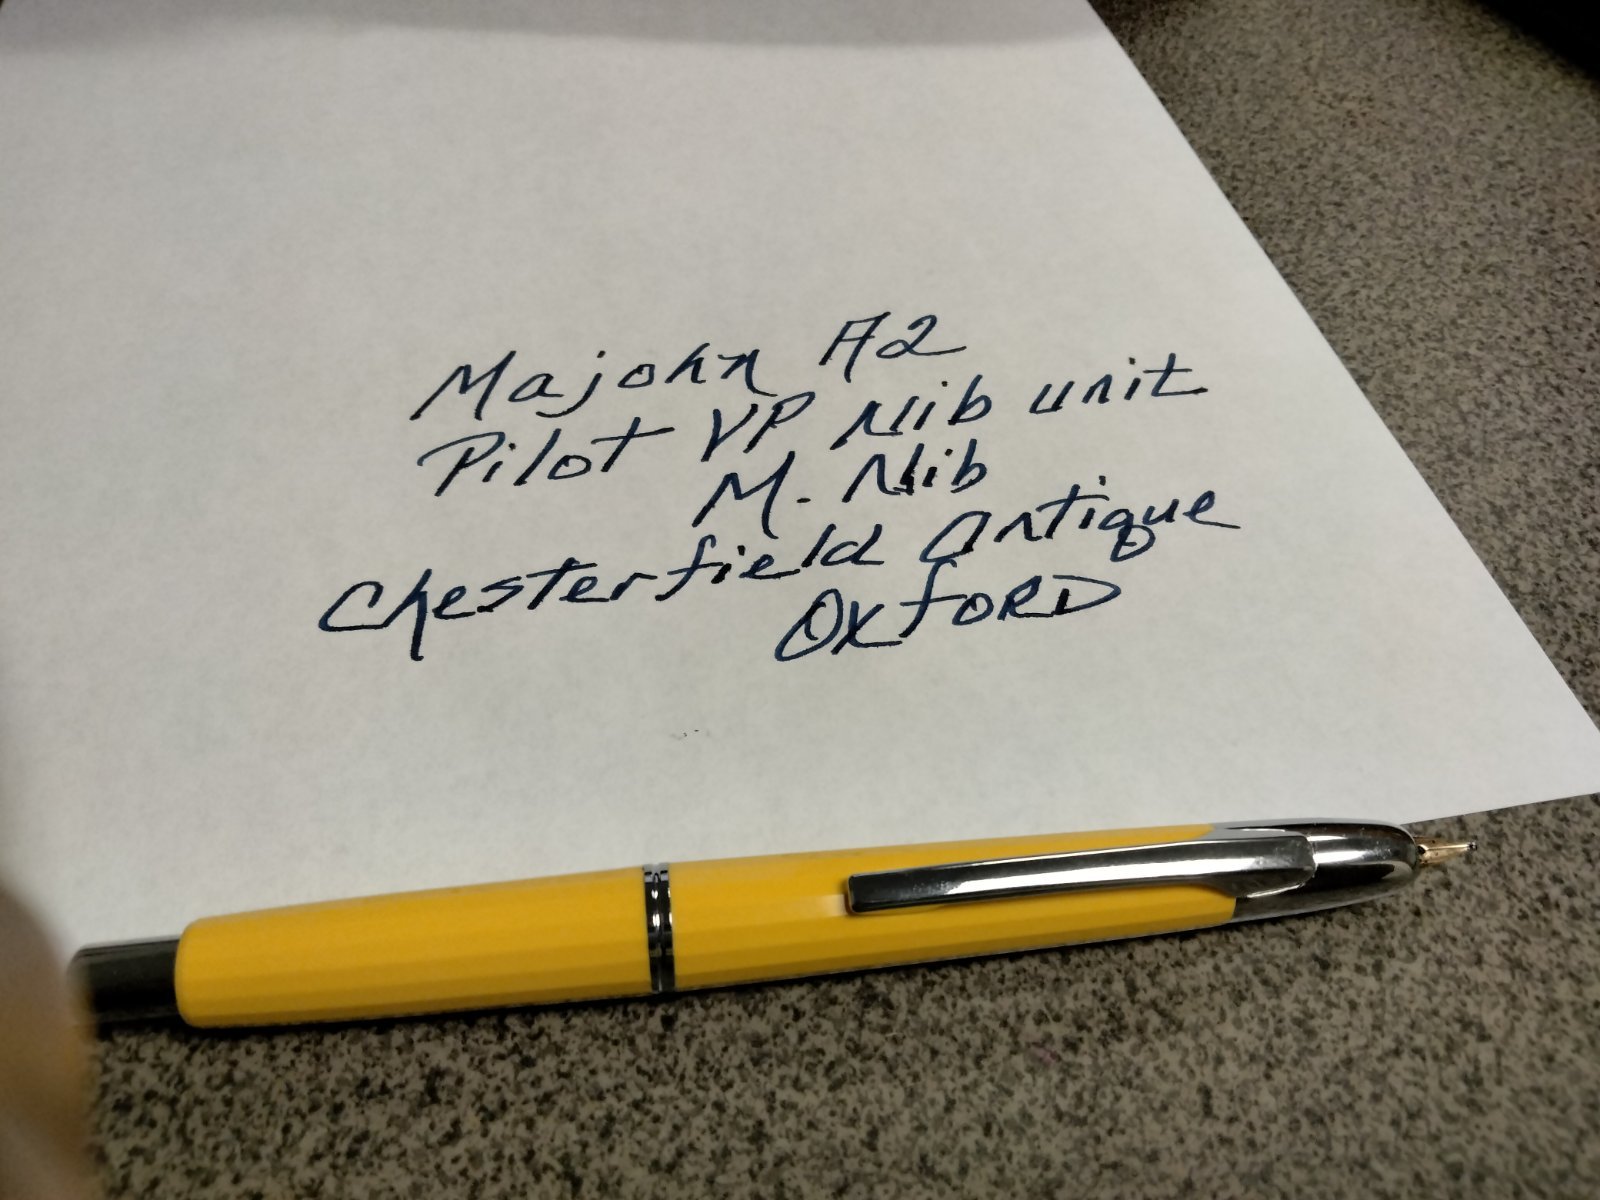 Majohn A2
Pilot VP Nib unit
M. Nib
Chesterfield Antique
OxfORD